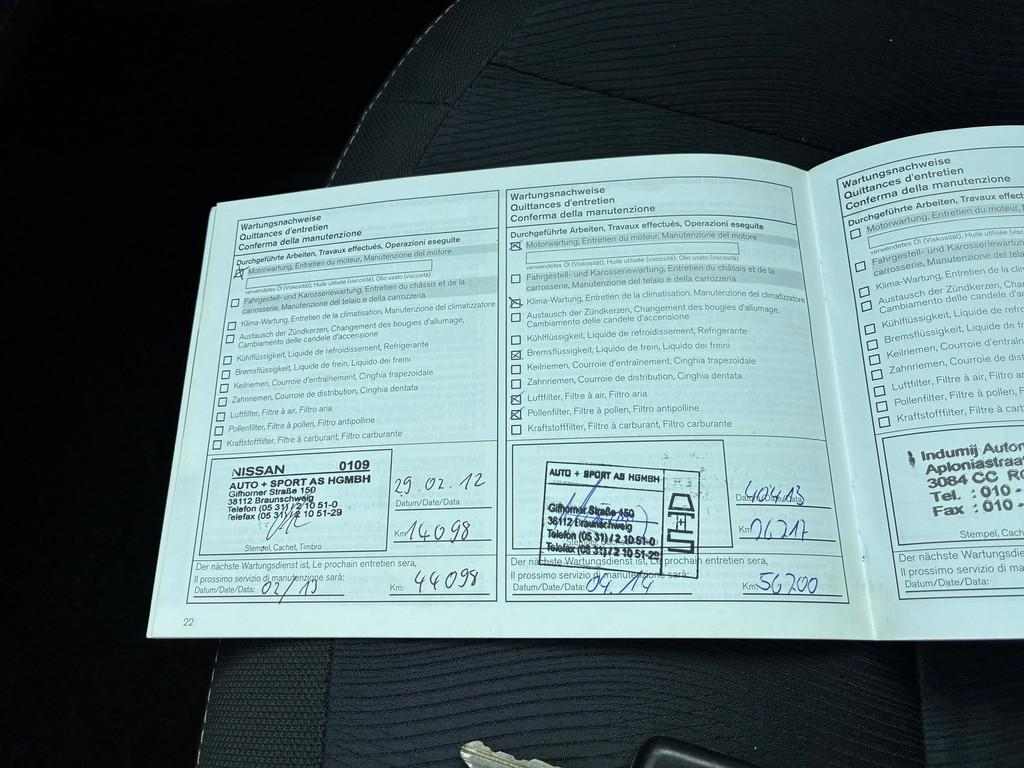 Wartungsnachweise
Quittances d'entretien
Conferma della manutenzione
Durchgeführte Arbeiten, Travaux effectués, Operazioni eseguite
Motorwartung, Entretien du moteur, Manutenzione del motore
verwendetes Öl (Viskosität), Huile utilisée (viscosité), Olio usato (viscosità)
Fahrgestell- und Karosseriewartung, Entretien du châssis et de la
carrosserie, Manutenzione del telaio e della carrozzeria
Klima-Wartung, Entretien de la climatisation, Manutenzione del climatizzatore
Austausch der Zündkerzen, Changement des bougies d'allumage,
Cambiamento delle candele d'accensione
Kühlflüssigkeit, Liquide de refroidissement, Refrigerante
Bremsflüssigkeit, Liquide de frein, Liquido dei freini
Keilriemen, Courroie d'entraînement, Cinghia trapezoidale
Zahnriemen, Courroie de distribution, Cinghia dentata
Luftfilter, Filtre à air, Filtro aria
Pollenfilter, Filtre à pollen, Filtro antipolline
Kraftstofffilter, Filtre à carburant, Filtro carburante
NISSAN 0109
AUTO + SPORT AS HGMBH
Gifhorner Straße 150
38112 Braunschweig
Telefon (05 31) / 2 10 51-0
Telefax (05 31) / 2 10 51-29
Stempel, Cachet, Timbro
29.02.12
Datum/Date/Data
Km: 14098
Der nächste Wartungsdienst ist, Le prochain entretien sera,
Il prossimo servizio di manutenzione sarà:
Datum/Date/Data: 02/13 Km: 44098
22
Wartungsnachweise
Quittances d'entretien
Conferma della manutenzione
Durchgeführte Arbeiten, Travaux effectués, Operazioni eseguite
Motorwartung, Entretien du moteur, Manutenzione del motore
verwendetes Öl (Viskosität), Huile utilisée (viscosité), Olio usato (viscosità)
Fahrgestell- und Karosseriewartung, Entretien du châssis et de la
carrosserie, Manutenzione del telaio e della carrozzeria
Klima-Wartung, Entretien de la climatisation, Manutenzione del climatizzatore
Austausch der Zündkerzen, Changement des bougies d'allumage,
Cambiamento delle candele d'accensione
Kühlflüssigkeit, Liquide de refroidissement, Refrigerante
Bremsflüssigkeit, Liquide de frein, Liquido dei freini
Keilriemen, Courroie d'entraînement, Cinghia trapezoidale
Zahnriemen, Courroie de distribution, Cinghia dentata
Luftfilter, Filtre à air, Filtro aria
Pollenfilter, Filtre à pollen, Filtro antipolline
Kraftstofffilter, Filtre à carburant, Filtro carburante
AUTO + SPORT AS HGMBH
Gifhorner Straße 150
38112 Braunschweig
Telefon (05 31) / 2 10 51-0
Telefax (05 31) / 2 10 51-29
Datum/Date/Data
Km: 26217
Der nächste Wartungsdienst ist, Le prochain entretien sera,
Il prossimo servizio di manutenzione sarà:
Datum/Date/Data: 04.14 Km: 56200
Wartungsnachweise
Quittances d'entretien
Conferma della manutenzione
Durchgeführte Arbeiten, Travaux
Motorwartung, Entretien du moteur,
verwendetes Öl (Viskosität), Huile utilisée
Fahrgestell- und
carrosserie, Manutenzione del
Klima-Wartung, Entretien de la
Austausch der
Cambiamento delle candele
Kühlflüssigkeit, Liquide de
Bremsflüssigkeit, Liquide de
Keilriemen, Courroie
Zahnriemen, Courroie de
Luftfilter, Filtre à air, Filtro
Pollenfilter, Filtre à pollen,
Kraftstofffilter, Filtre à
Indumij
Aploniastraa
3084 CC
Tel. : 010 -
Fax : 010 -
Stempel,
Der nächste
Il prossimo servizio di
Datum/Date/Data: